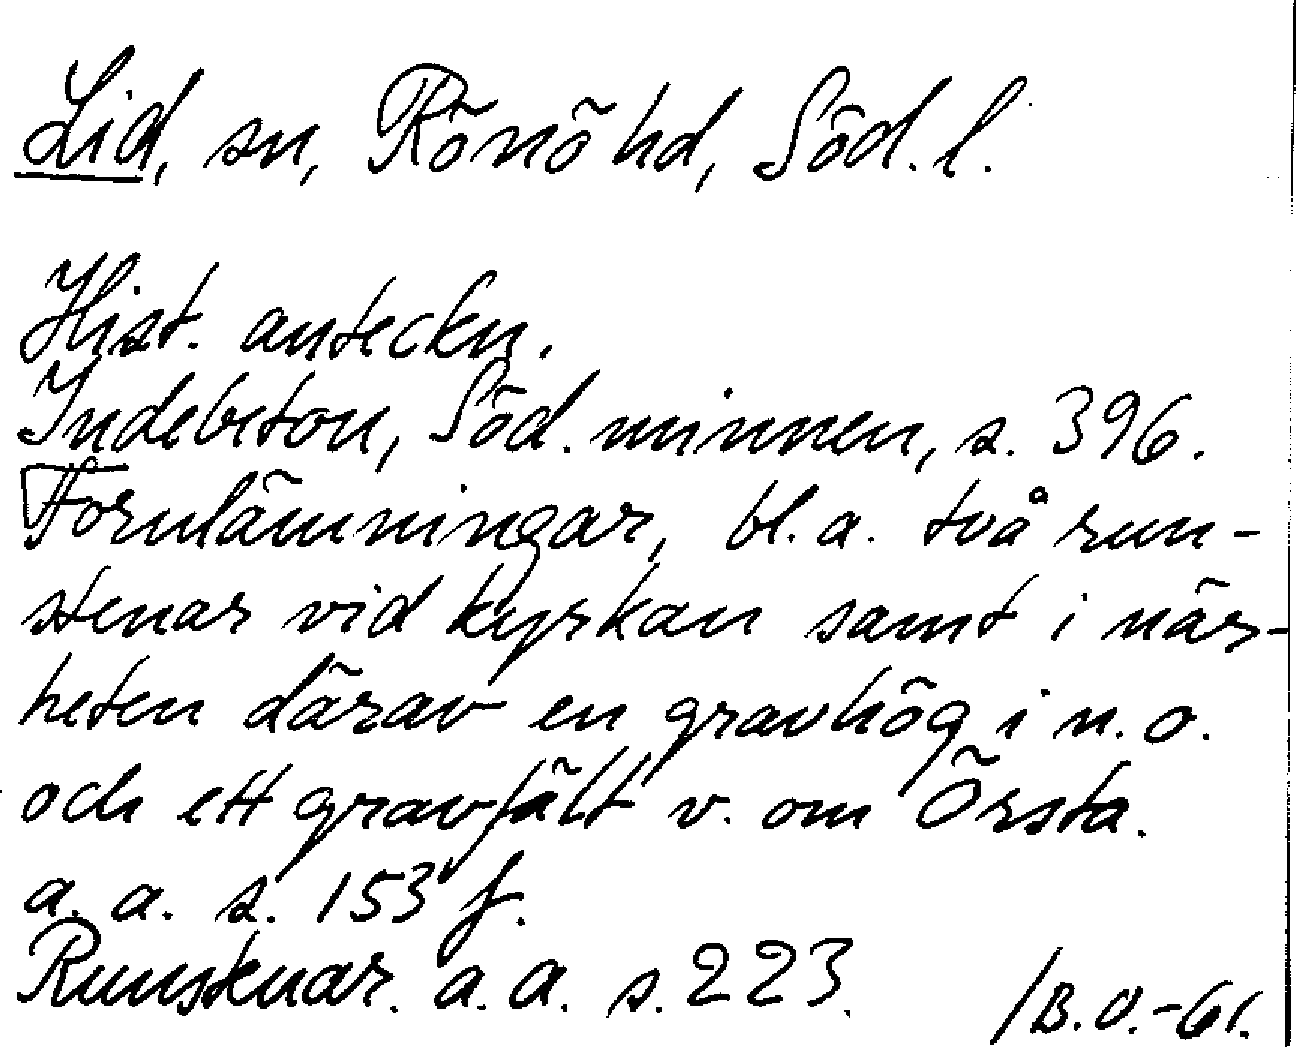 Lid, sn, Rönö hd, Söd. l.
Hist. anteckn.
Indebetou, Söd. minnen, s. 396.
Fornlämningar, bl. a. två run-
stenar vid kyrkan samt i när-
heten därav en gravhög i n. o.
och ett gravfält v. om Örsta.
a. a. s. 153 f.
Runstenar. a. a. s. 223.
/B.O.-61.